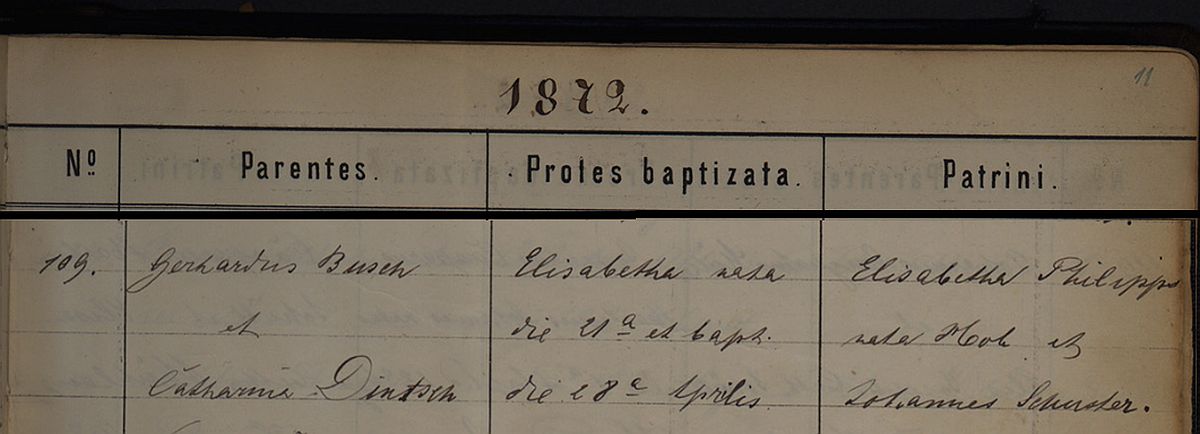 11
1872.
Nº Parentes. Protes baptizata. Patrini.
109. Gerhardus Busch Elisabetha nata Elisabetha Philipps
et die 21ª et bapt. nata Hob et
Catharina Dintsch die 28ª Aprilis Johannes Schuster.